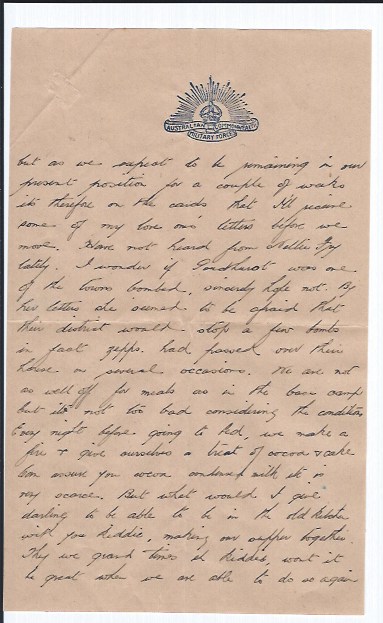 AUSTRALIAN COMMONWEALTH
MILITARY FORCES
but as we expect to be remaining in our
present position for a couple of weeks
it's therefore on the cards that I'll receive
some of my love one's letters before we
move. Have not heard from Nellie Fry
lately. I wonder if Sandhurst was one
of the towns bombed, sincerely hope not. By
her letters she seemed to be afraid that
their district would stop a few bombs
in fact zepps. had passed over their
house on several occasions. We are not
as well off for meals as in the base camp
but its not too bad considering the conditions
Every night before going to bed, we make a
fire & give ourselves a treat of cocoa & cake
can assure you cocoa condensed milk it is
very scarce. But what would I give
darling to be able to be in the old kitchen
with you kiddie, making our supper together.
They were grand times eh kiddie, wont it
be great when we are able to do so again